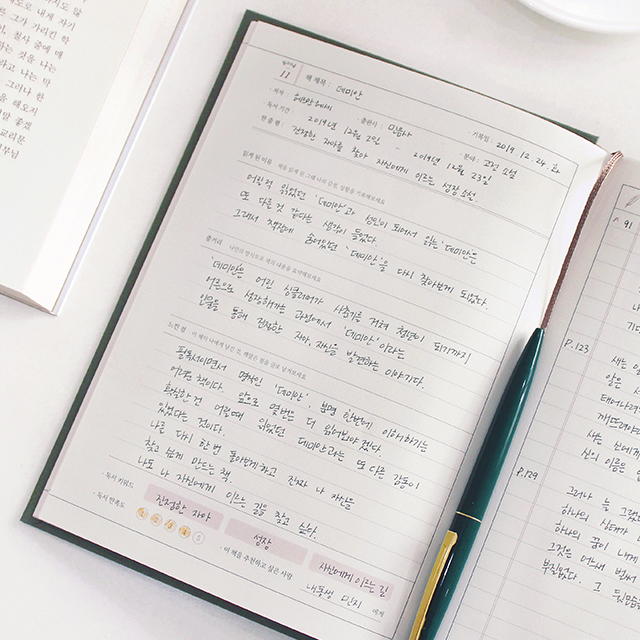 11
책 제목 : 데미안
· 저자 : 헤르만 헤세
· 출판사 : 민음사
· 기록일 : 2019. 12. 24. 화
· 독서 기간 2019년 12월 2일 - 2019년 12월 23일
· 분야 : 고전 소설
· 한 줄 평 : 진정한 자아를 찾아 자신에게 이르는 성장 소설.
읽게 된 이유
어릴적 읽었던 '데미안'과 성인이 되어서 읽는 '데미안'은
또 다를 것 같다는 생각이 들었다.
그래서 책장에 숨어있던 '데미안'을 다시 찾아보게 되었다.
줄거리
'데미안'은 어린 싱클레어가 사춘기를 거쳐 청년이 되기까지
어른으로 성장해가는 과정에서 '데미안'이라는
인물을 통해 진정한 자아, 자신을 발견하는 이야기다.
느낀 점
필독서이면서 명작인 '데미안'. 분명 한번에 이해하기는
어려운 책이다. 앞으로 몇번은 더 읽어봐야겠다.
확실한건 어릴때 읽었던 데미안과는 또 다른 감동이
있었다는 것이다.
나를 다시 한 번 돌아보게 하고 진짜 나 자신을
찾고 싶게 만드는 책.
나도 나 자신에게 이르는 길을 찾고 싶다.
· 독서 키워드
진정한 자아
성장
자신에게 이르는 길
· 독서 만족도
· 이 책을 추천하고 싶은 사람
내동생 민지 에게
P. 91
P. 123
새는 알
알은 세
태어나려
깨뜨려야
새는 신에게
신의 이름은
P. 129
그러나 늘 그랬
하나의 상태가
하나의 꿈이 내게
그것은 어느새 벌써
부질없다. 그